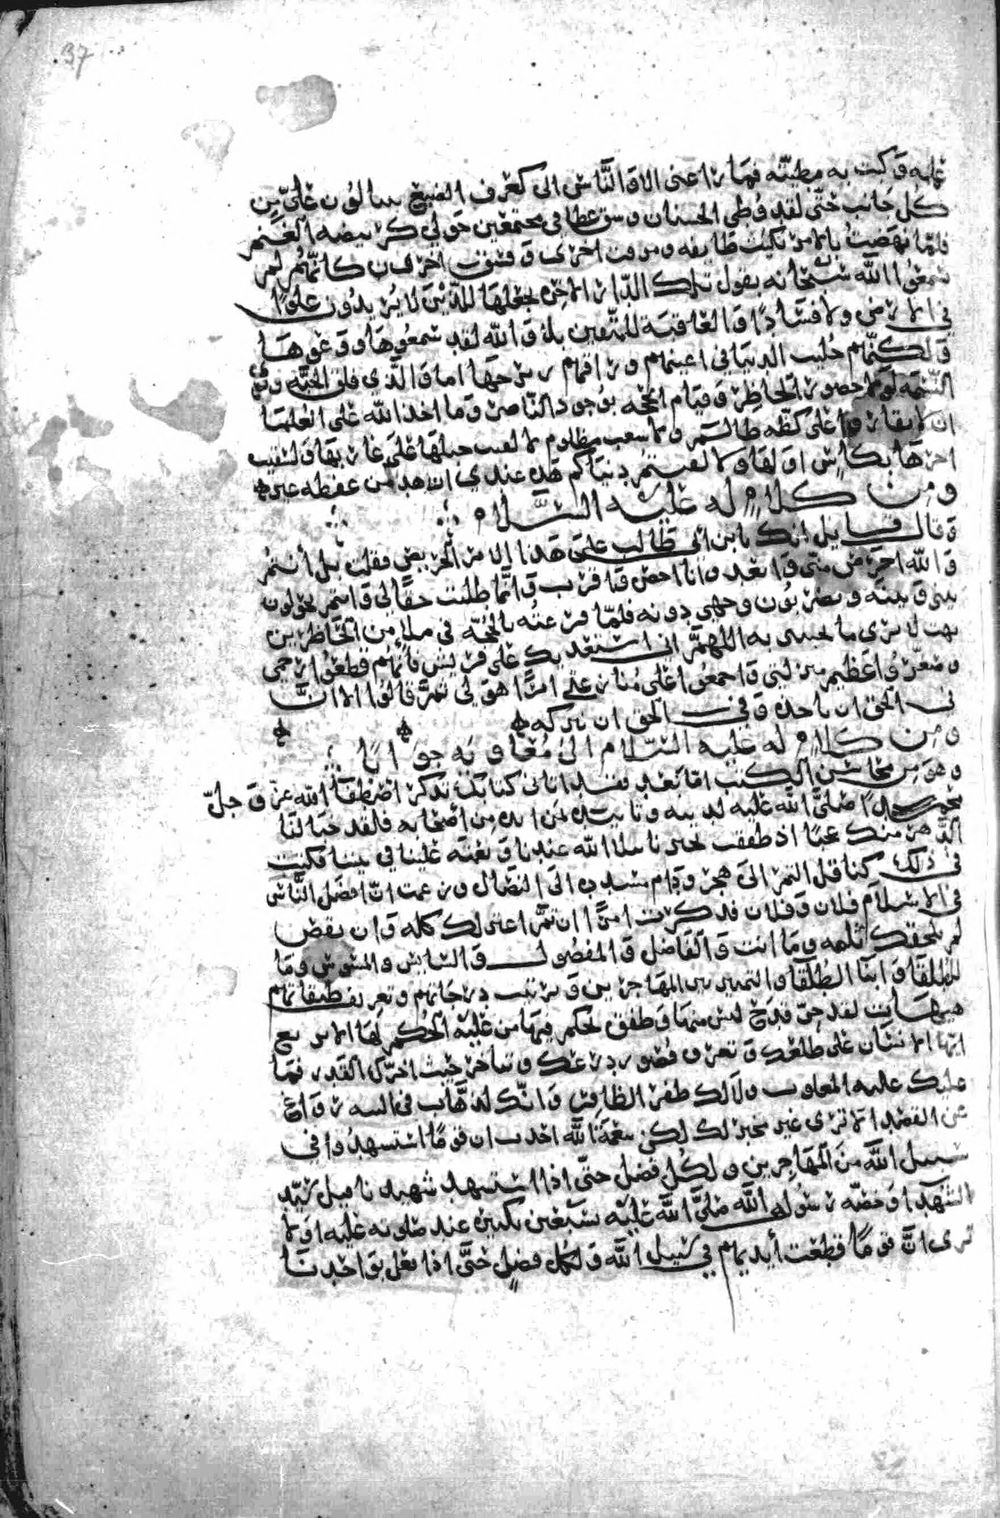 37
عليه وكبت به بطنته فما راعني الا والناس الى كعرف الضبع ينثالون علي من
كل جانب حتى لقد وطى الحسنان وشق عطافي مجتمعين حولي كربيضه الغنم
فلما نهضت بالامر نكثت طايفه ومرقت اخرى وفسق اخرون كانهم لم
يسمعوا الله سبحانه يقول تلك الدار الاخره نجعلها للذين لا يريدون علوا
في الارض ولا فسادا والعاقبة للمتقين بلى والله لقد سمعوها ووعوها
ولكنهم حليت الدنيا في اعينهم وراقهم زبرجها اما والذي فلق الحبه وبرا
النسمه لولا حضور الحاظر وقيام الحجه بوجود الناصر وما اخذ الله على العلما
ان لا يقاروا على كظه ظالم ولا سغب مظلوم لالقيت حبلها على غاربها ولسقيت
اخرها بكاس اولها ولالفيتم دنياكم هذه عندي ازهد من عفطه عنز
ومن كلام له عليه السلام
وقال قايل انك يابن ابي طالب على هذا الامر لحريص فقلت بل انتم
والله احرص مني وابعد وانا اخص واقرب وانما طلبت حقا لي وانتم تحولون
بيني وبينه وتضربون وجهي دونه فلما قرعته بالحجه في ملا من الحاظرين
بهت لا يدري ما يجيبني به اللهم اني استعديك على قريش فانهم قطعوا رحمي
وصغروا عظيم منزلتي واجمعوا على منازعتي امرا هو لي ثم قالوا الا ان
في الحق ان ناخذه وفي الحق ان تتركه
ومن كلام له عليه السلام الى معاويه جوابا
وهو من محاسن الكتب اما بعد فقد اتاني كتابك تذكر اصطفا الله عز وجل
محمدا صلى الله عليه لدينه وتاييده بمن ايده من اصحابه فلقد خبا لنا
الدهر منك عجبا اذ طفقت تخبرنا ببلا الله عندنا ونعمته علينا في نبينا فكنت
في ذلك كناقل التمر الى هجر وداع مسدده الى النضال وزعمت ان افضل الناس
في الاسلام فلان وفلان فذكرت امرا ان تم اعتزلك كله وان نقص
لم يلحقك ثلمه وما انت والفاضل والمفضول والسايس والمسوس وما
للطلقا وابنا الطلقا والتمييز بين المهاجرين وترتيب درجاتهم وتعريف طبقاتهم
هيهات لقد حن قدح ليس منها وطفق يحكم فيها من عليه الحكم لها الا تربع
ايها الانسان على ظلعك وتعرف قصور ذرعك وتتاخر حيث اخرك القدر فما
عليك غلبه المغلوب ولا لك ظفر الظافر وانك لذهاب في التيه رواغ
عن القصد الا ترى غير مخبر لك لكن بنعمة الله احدث ان قوما استشهدوا في
سبيل الله من المهاجرين ولكل فضل حتى اذا استشهد شهيدنا قيل سيد
الشهدا وخصه رسول الله صلى الله عليه بسبعين تكبيره عند صلوته عليه اولا
ترى ان قوما قطعت أيديهم في سبيل الله ولكل فضل حتى اذا فعل بواحدنا